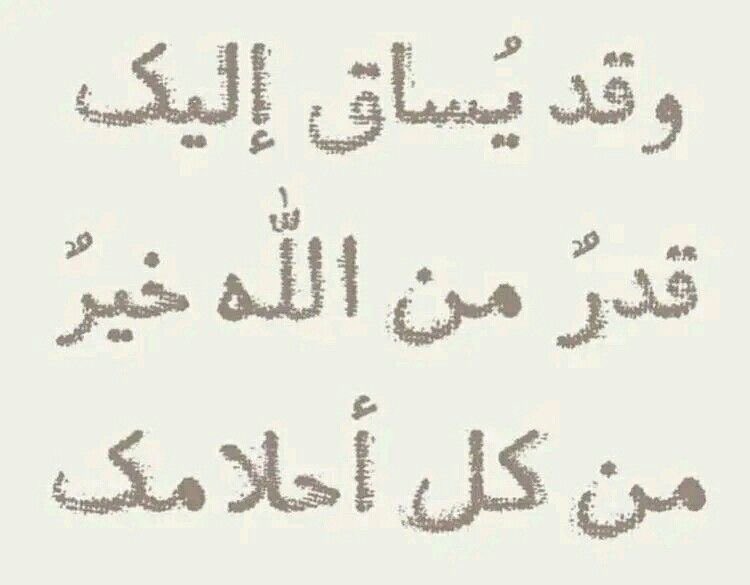 وقد يُساق إليک
قدرُ من اللّٰه خيرُ
من کل أحلامک